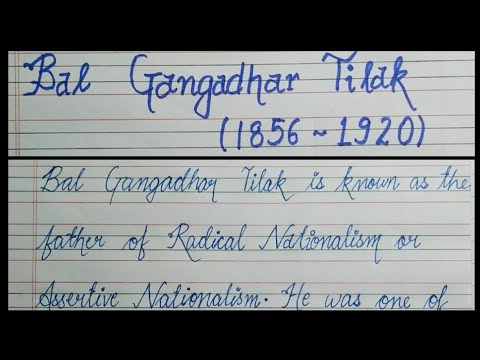 Bal Gangadhar Tilak
(1856 ~ 1920)
Bal Gangadhar Tilak is known as the
father of Radical Nationalism or
Assertive Nationalism. He was one of